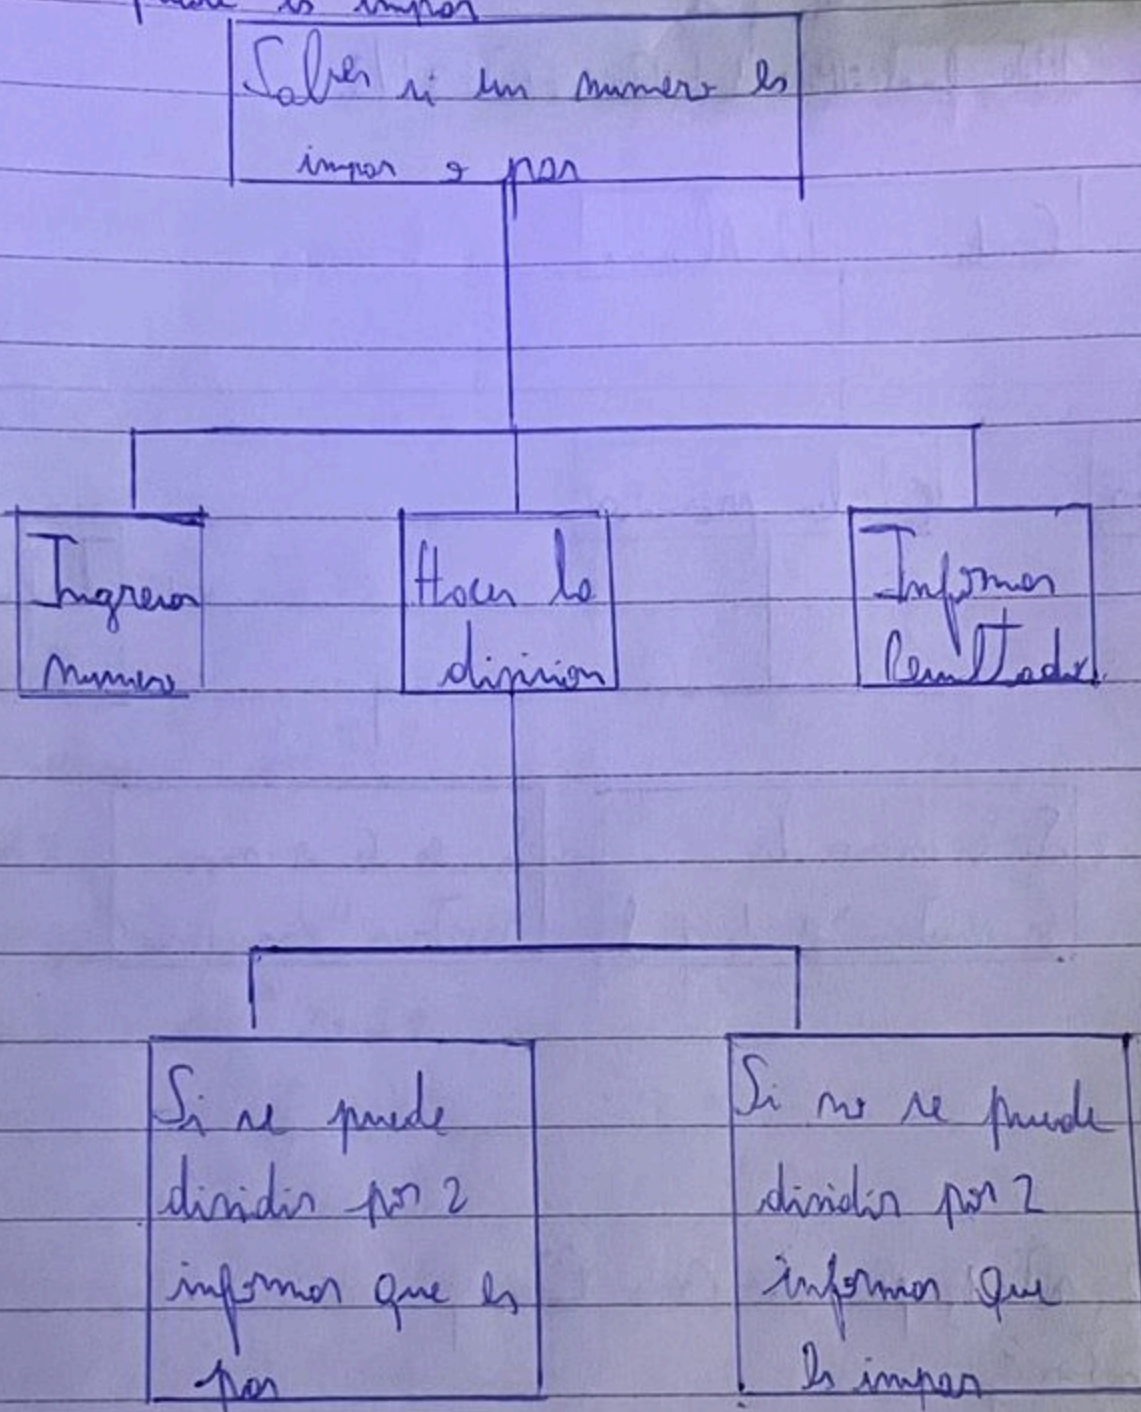 es impar
Saber si un numero es
impar o par
Ingresar
numero
Hacer la
division
Informar
Resultado
Si se puede
dividir por 2
informar que es
par
Si no se puede
dividir por 2
informar que
es impar